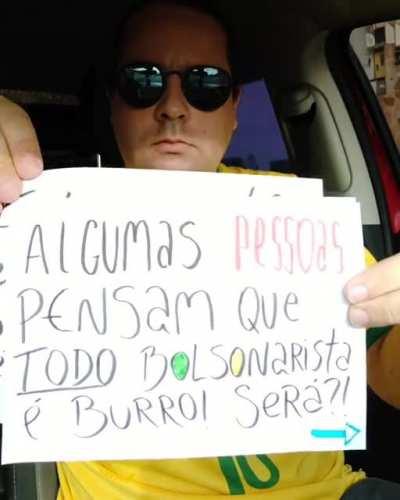 ALGUMAS PESSOAS
PENSAM QUE
TODO BOLSONARISTA
É BURRO! SERÁ?!
10